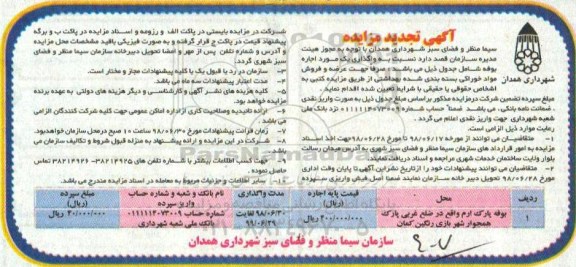 آگهی تجدید مزایده
شهرداری همدان
سیما منظر و فضای سبز شهرداری همدان با توجه به مجوز هیئت
مدیره سازمان قصد دارد نسبت به واگذاری یک مورد اجاره
بوفه شامل جدول ذیل می باشد، صرفا جهت عرضه و فروش
مواد خوراکی بسته بندی شده بهداشتی از طریق مزایده کتبی به
اشخاص حقوقی یا حقیقی با شرایط تعیین شده اقدام نماید.
مبلغ سپرده تضمین شرکت درمزایده مذکور بر اساس مبلغ جدول ذیل به صورت واریز نقدی
، ضمانت نامه بانکی می باشد. ضمنا شماره حساب 0111112073009 نزد بانک ملی
شعبه شهرداری جهت واریز نقدی است.
رعایت موارد ذیل الزامی است.
متقاضیان می توانند از مورخه 98/06/17 تا مورخ 98/06/28 جهت اخذ اسناد
مزایده به امور قرارداد های سازمان سیما منظر و فضای سبز شهری به آدرس میدان رسالت
بلوار ولایت ساختمان خدمات شهری مراجعه و اسناد دریافت نمایند.
متقاضیان می توانند پیشنهادات خود را از تاریخ نشر این آگهی تا پایان وقت اداری
مورخ 98/06/28 تحویل دبیر خانه سازمان نمایند ضمنا اصل فیش واریزی سپرده
شرکت در مزایده بایستی در پاکت الف و رزومه و اسناد مزایده در پاکت ب و برگه
پیشنهاد قیمت در پاکت ج قرار گرفته و به صورت فیزیکی باقید مشخصات محل مزایده
و آدرس و شماره تلفن پس از مهر و امضا تحویل دبیرخانه سازمان سیما منظر و فضای
سبز شهری گردد.
سازمان در رد یا قبول یک یا کلیه پیشنهادات مجاز و مختار است.
مدت اعتبار پیشنهادات سه ماه می باشد.
کلیه هزینه های نشر آگهی و کارشناسی و دیگر هزینه های دولتی به عهده برنده
مزایده خواهد بود.
ارائه تاییدیه وصلاحیت کاری از اداره اماکن عمومی جهت کلیه شرکت کنندگان الزامی
می باشد.
زمان قرائت پیشنهادات مورخ 98/06/30 ساعت 10 صبح درمحل سازمان خواهدبود.
شرکت در این مزایده و ارائه پیشنهاد به منزله قبول شروط و تکالیف سازمان می
باشد.
جهت کسب اطلاعات بیشتر با شماره تلفن های 38214925-38214926 تماس
حاصل نموده
سایر اطلاعات و جزئیات مربوط به معامله در اسناد مزایده مندرج می باشد.
ردیف محل قیمت پایه اجاره ماهانه ریال مدت واگذاری نام بانک و شعبه و شماره حساب واریز سپرده مبلغ سپرده ریال
1 بوفه پارک ارم واقع در ضلع غربی پارک همجوار شهر بازی رنگین کمان 200/000/000 ریال 98/06/30 لغایت 99/06/29 شماره حساب 0111112073009 بانک ملی شعبه شهرداری 20/000/000 ریال
سازمان سیما منظر و فضای سبز شهرداری همدان